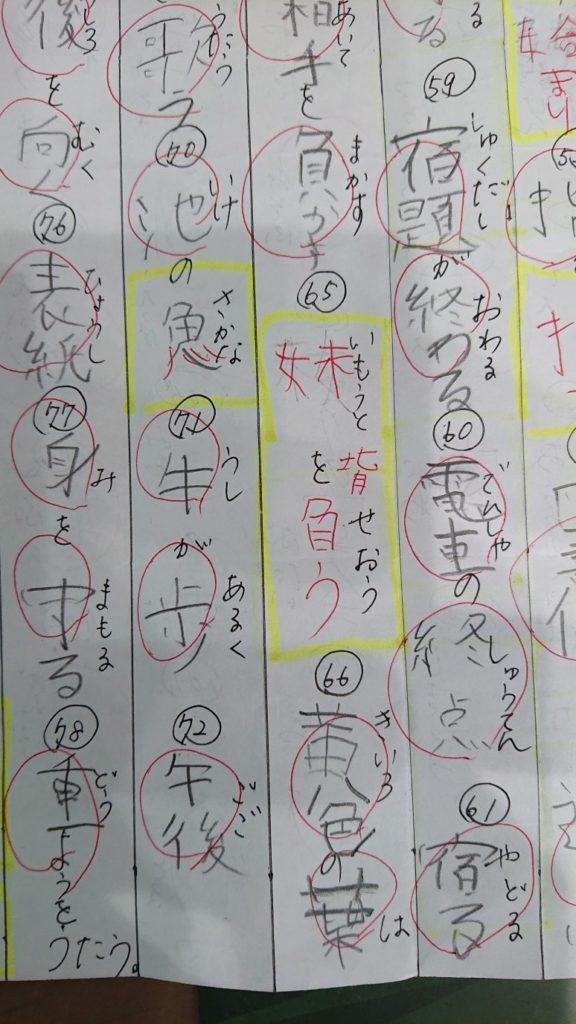 まり
る
しゅくだい おわる でんしゃ しゅうてん やどる
59 宿題が終わる 60 電車の終点 61 宿る
あいて まかす いもうと せおう きいろ は
相手を負かす 65 妹を背負う 66 黄色の葉
うたう いけ さかな うし あるく ごご
歌う 70 池の魚 71 牛が歩 72 午後
むく ひょうし み まもる どう
後を向く 76 表紙 77 身を守る 78 童ようをうたう。